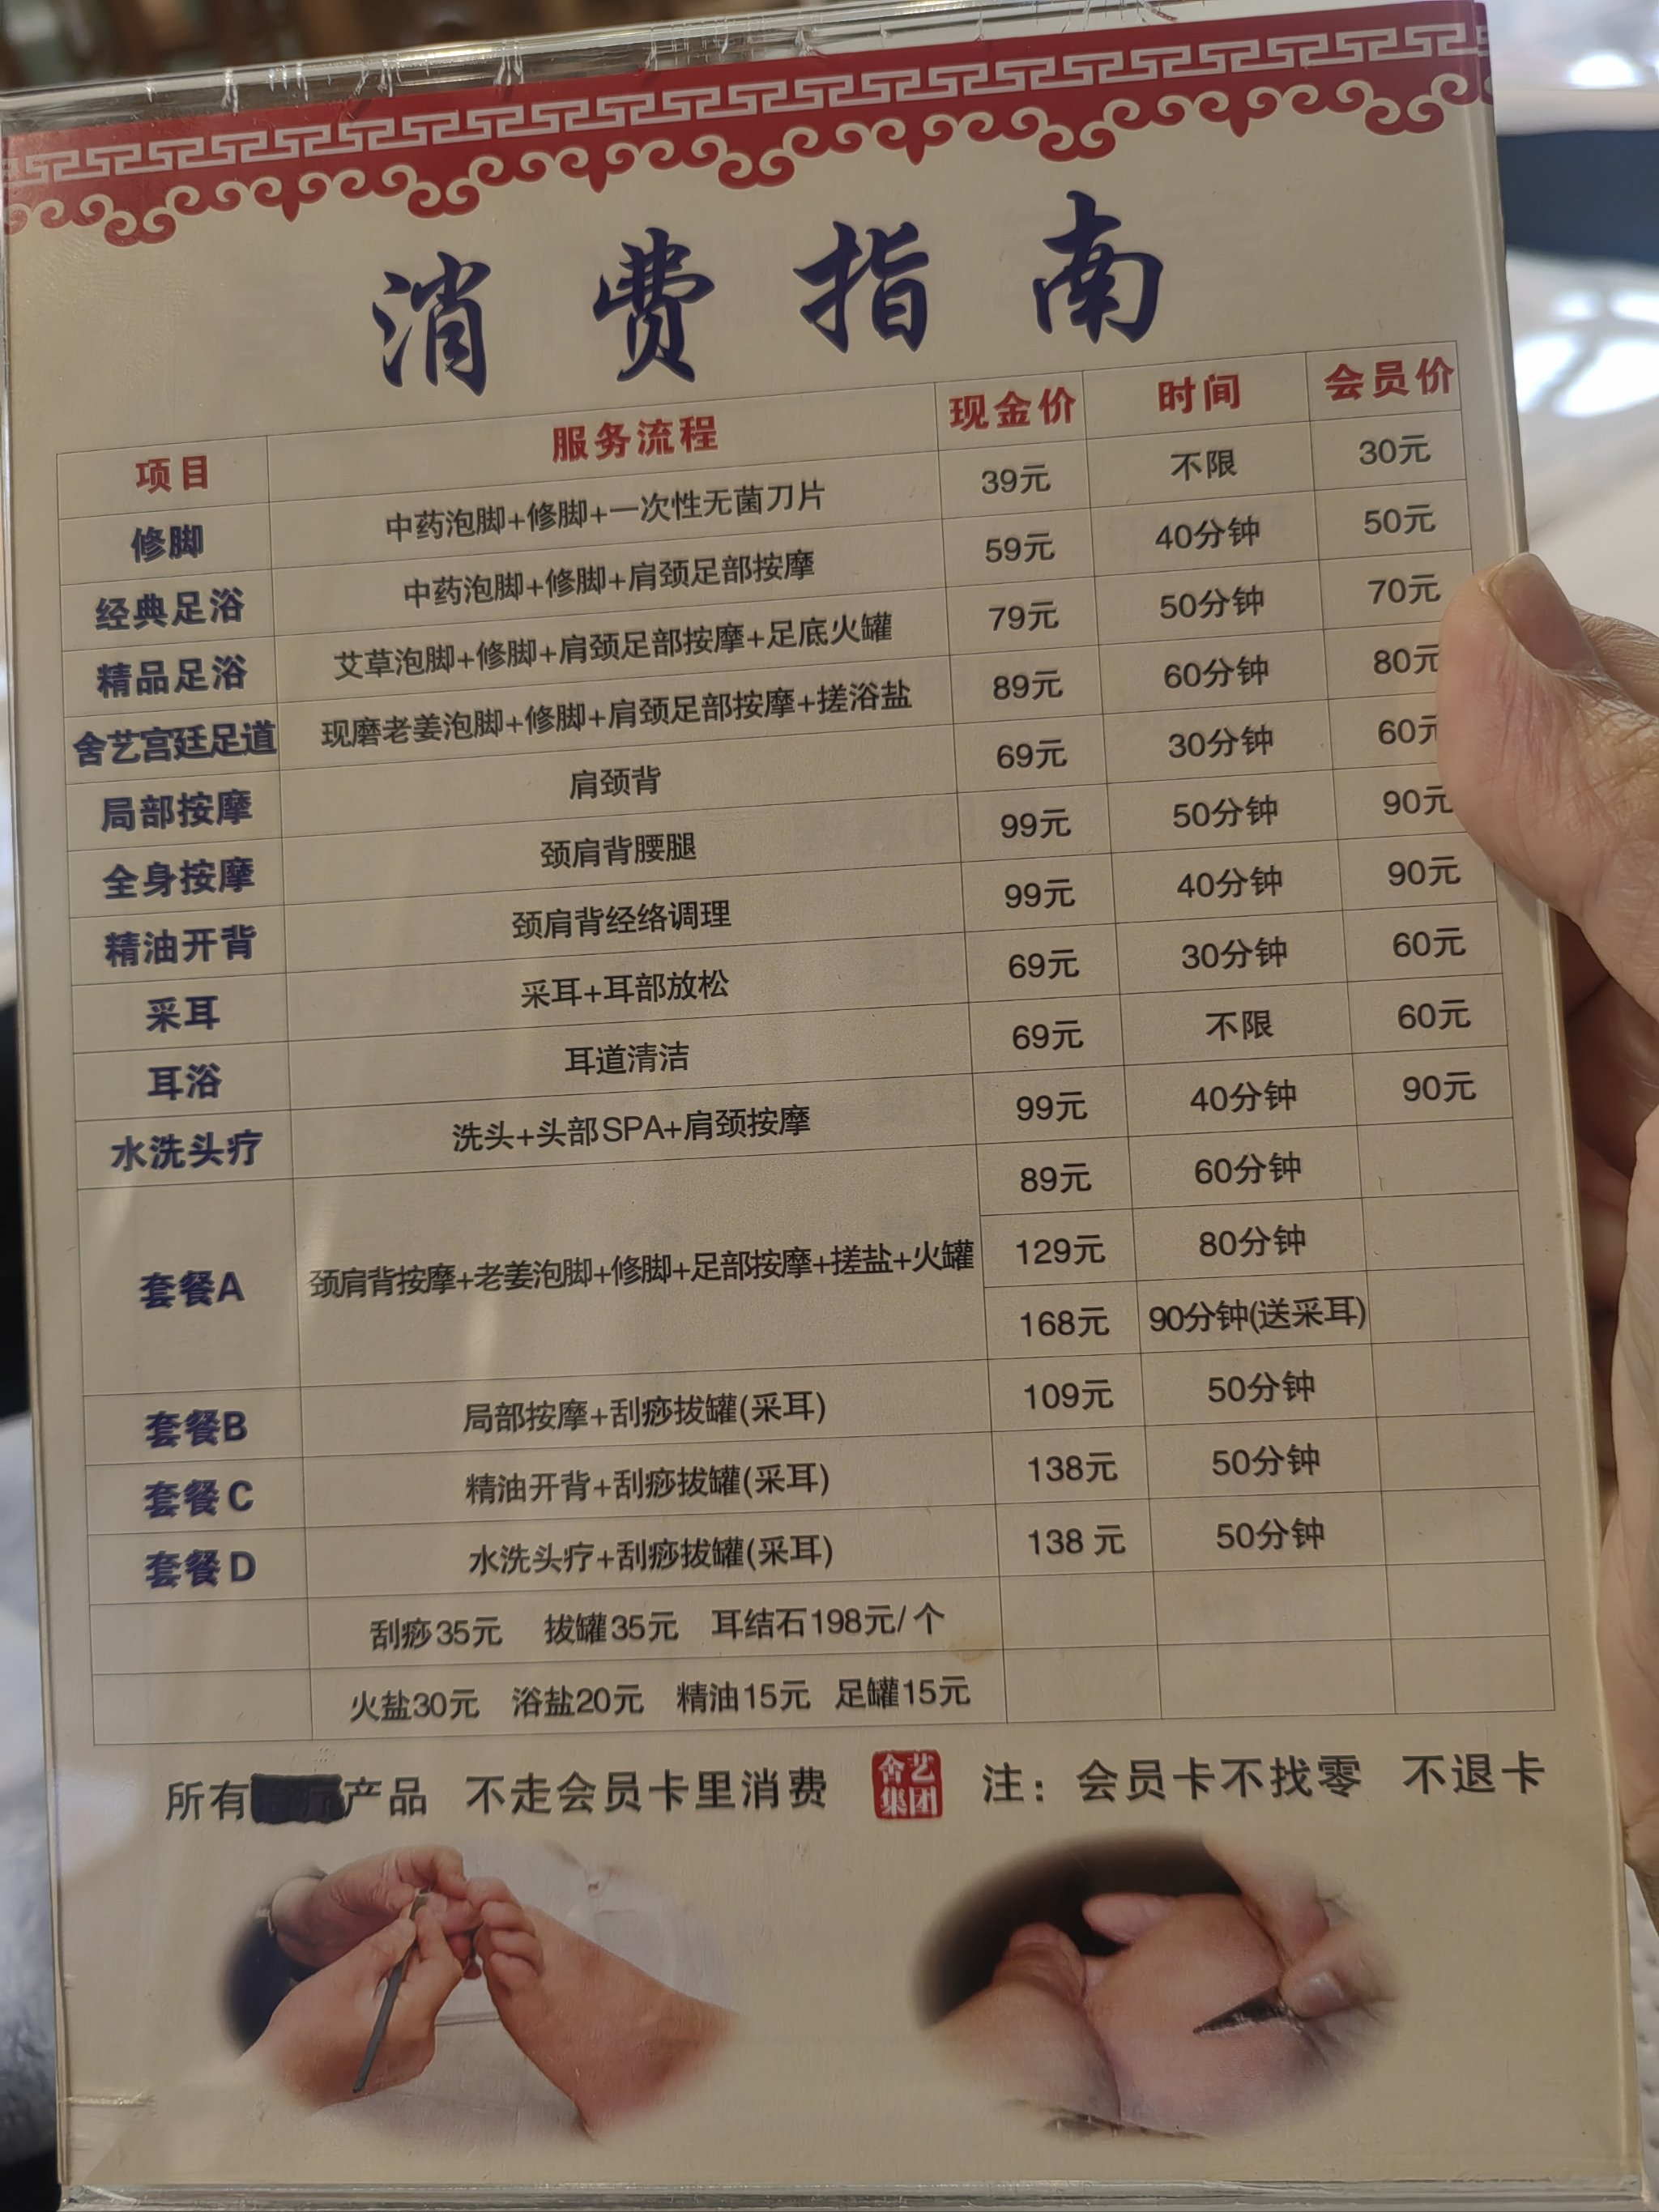 消费指南
项目 服务流程 现金价 时间 会员价
修脚 中药泡脚+修脚+一次性无菌刀片 39元 不限 30元
经典足浴 中药泡脚+修脚+肩颈足部按摩 59元 40分钟 50元
精品足浴 艾草泡脚+修脚+肩颈足部按摩+足底火罐 79元 50分钟 70元
舍艺宫廷足道 现磨老姜泡脚+修脚+肩颈足部按摩+搓浴盐 89元 60分钟 80元
局部按摩 肩颈背 69元 30分钟 60元
全身按摩 颈肩背腰腿 99元 50分钟 90元
精油开背 颈肩背经络调理 99元 40分钟 90元
采耳 采耳+耳部放松 69元 30分钟 60元
耳浴 耳道清洁 69元 不限 60元
水洗头疗 洗头+头部SPA+肩颈按摩 99元 40分钟 90元
89元 60分钟
套餐A 颈肩背按摩+老姜泡脚+修脚+足部按摩+搓盐+火罐 129元 80分钟
168元 90分钟(送采耳)
套餐B 局部按摩+刮痧拔罐(采耳) 109元 50分钟
套餐C 精油开背+刮痧拔罐(采耳) 138元 50分钟
套餐D 水洗头疗+刮痧拔罐(采耳) 138元 50分钟
刮痧35元 拔罐35元 耳结石198元/个
火盐30元 浴盐20元 精油15元 足罐15元
所有产品 不走会员卡里消费 舍艺集团 注：会员卡不找零 不退卡